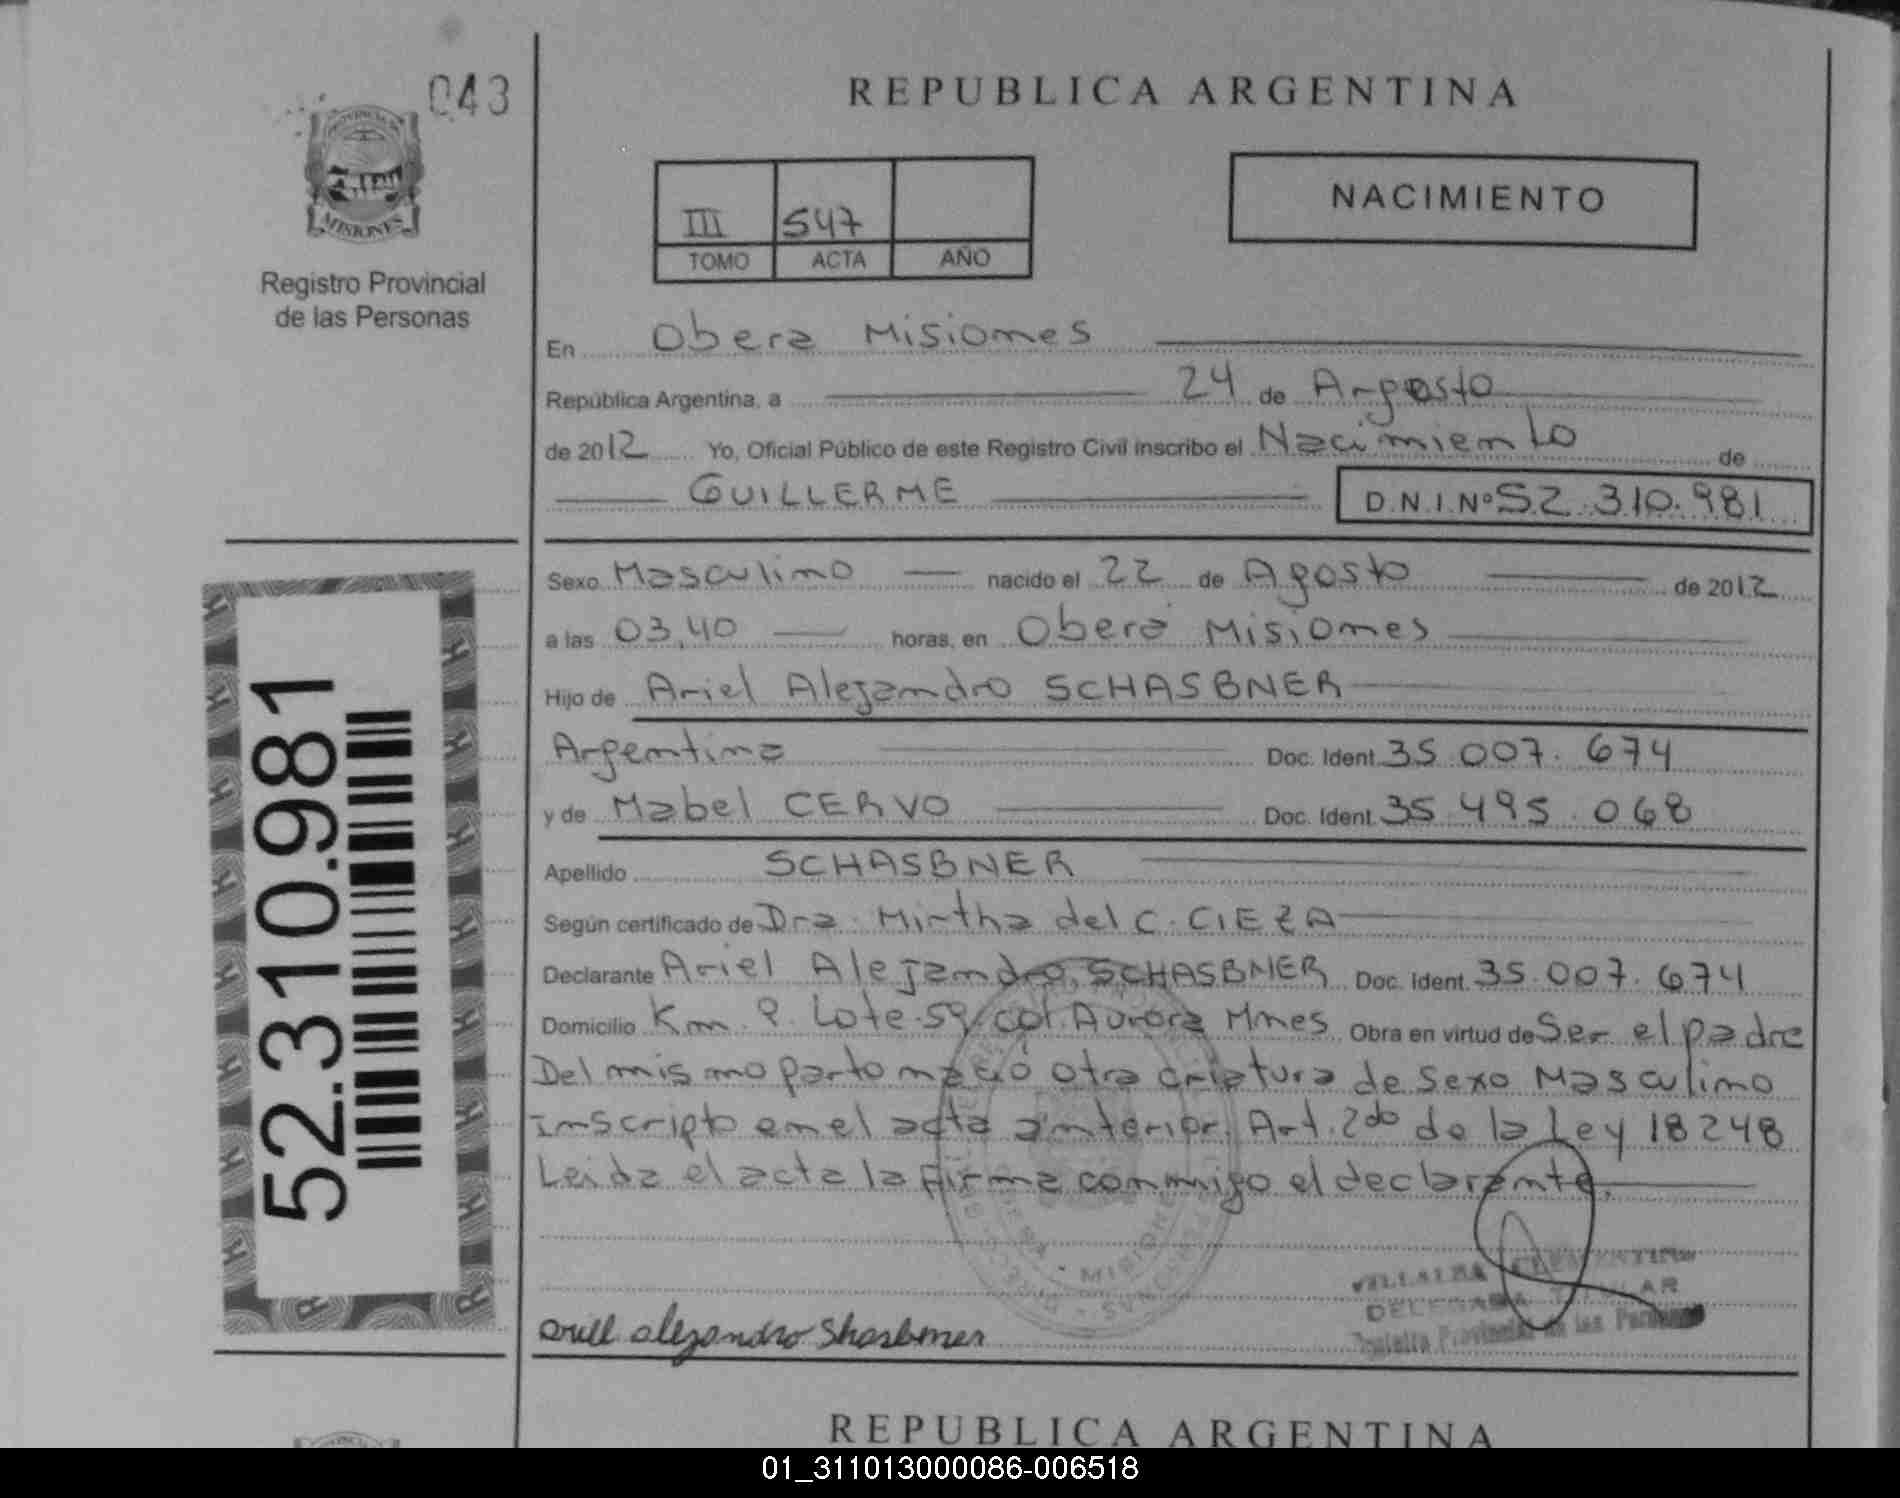 043
REPUBLICA ARGENTINA
PROVINCIA DE
MISIONES
Registro Provincial
de las Personas
III 547
TOMO ACTA AÑO
NACIMIENTO
En Obera Misiones
República Argentina, a 24 de Agosto
de 2012 Yo, Oficial Público de este Registro Civil inscribo el Nacimiento de
GUILLERME D.N.I.Nº 52.310.981
Sexo Masculino nacido el 22 de Agosto de 2012
a las 03,40 horas, en Oberá Misiones
Hijo de Ariel Alejandro SCHASBNER
Argentina Doc. Ident. 35.007.674
y de Mabel CERVO Doc. Ident. 35.495.068
Apellido SCHASBNER
Según certificado de Dra. Mirtha del C. CIEZA
Declarante Ariel Alejandro SCHASBNER Doc. Ident. 35.007.674
Domicilio Km. 9. Lote.59 col. Aurora Mnes Obra en virtud de Ser el padre
Del mismo parto nació otra criatura de sexo Masculino
inscripto en el acta anterior. Art. 2do de la Ley 18248
Leida el acta la firma conmigo el declarante.
VILLALBA
DELEGADA TITULAR
Registro Provincial de las Personas
alejandro Shasbner
52.310.981
REPUBLICA ARGENTINA
01_311013000086-006518